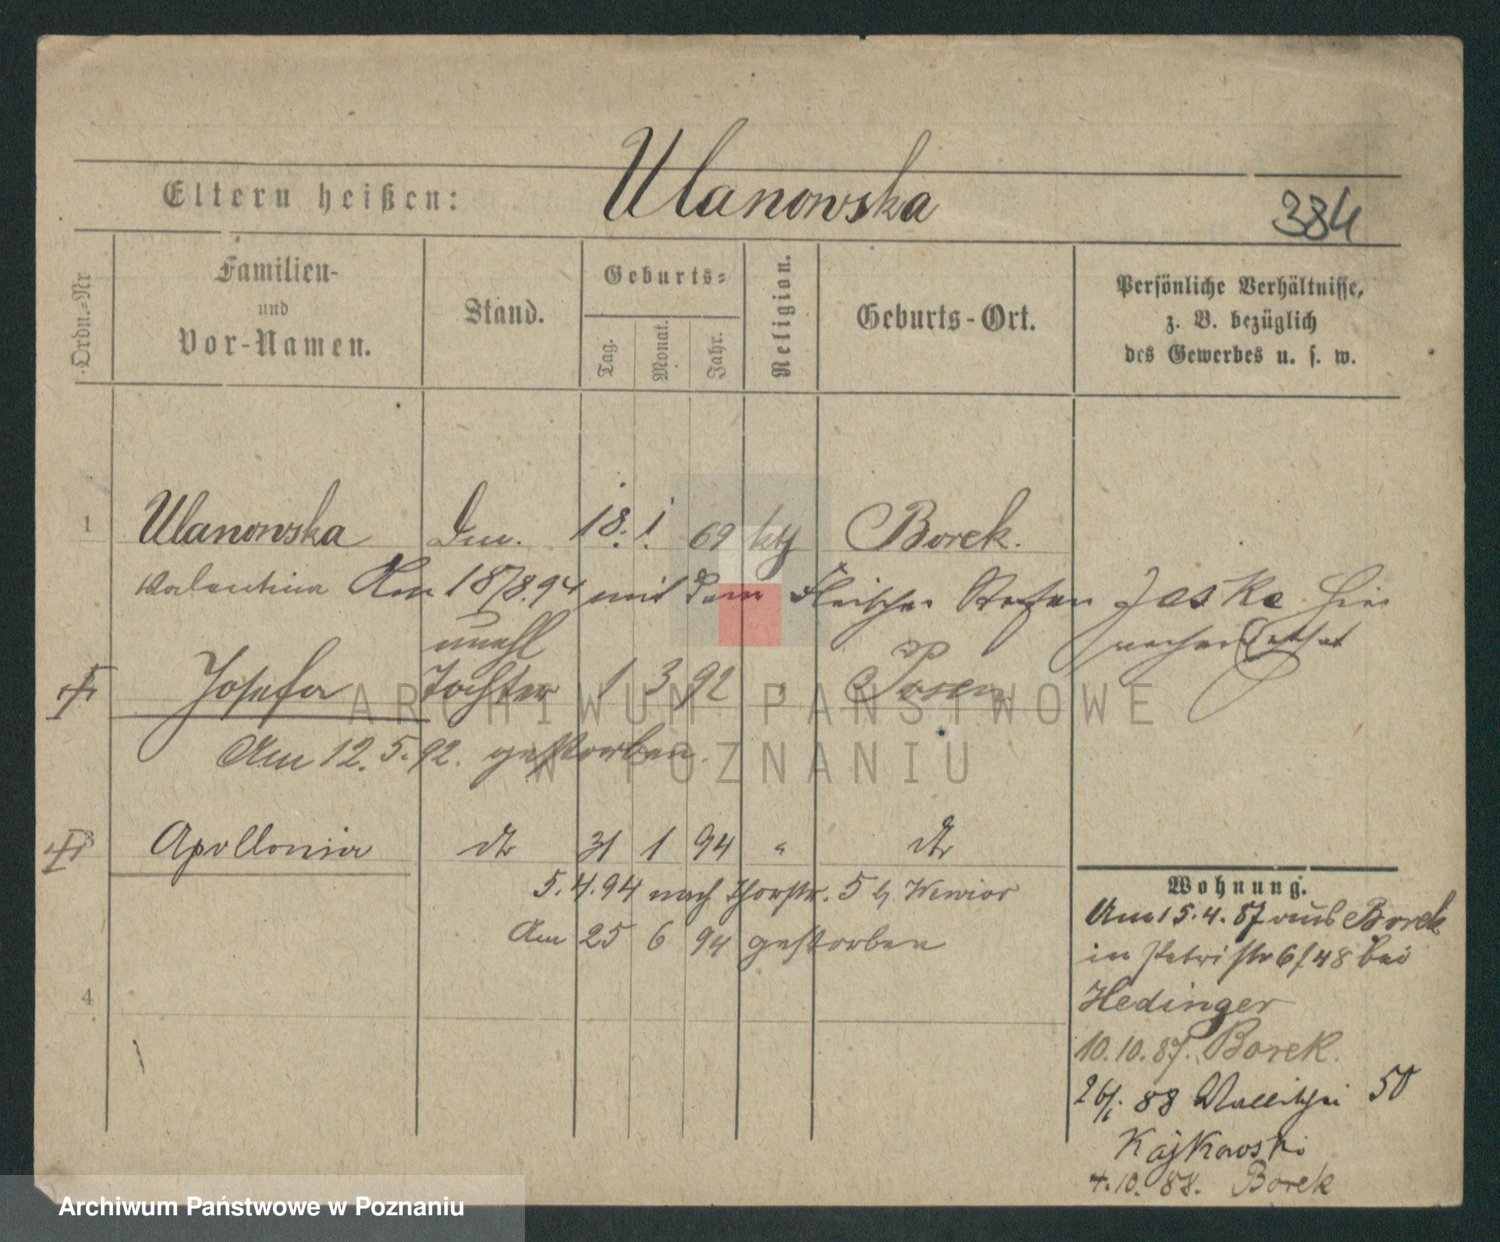 Ulanowska
Eltern heißen:
384
Ordn.-Nr
Familien-
und
Vor-Namen.
Stand.
Geburts-
Tag.
Monat.
Jahr.
Religion.
Geburts-Ort.
Persönliche Verhältnisse,
z. B. bezüglich
des Gewerbes u. s. w.
1 Ulanowska 18. 1. 69 kth Borek.
Valentina Am 18/8.94 mit dem Fleischer Stefan Jaske hier
unehl
Josefa Tochter 1 3 92 " Posen
Am 12.5.92. gestorben.
3 Apollonia dto 31 1 94 " dto
5.4.94 nach Thorstr. 5 b/ Wewior
Am 25 6 94 gestorben
4
Wohnung.
Am 15.4.87 von Borek
in Petristr 6 48 bei
Hedinger
10.10.87. Borek.
26/1. 88 Wallischei 50
Kajkowski
4.10.88. Borek
ARCHIWUM PAŃSTWOWE
W POZNANIU
Archiwum Państwowe w Poznaniu